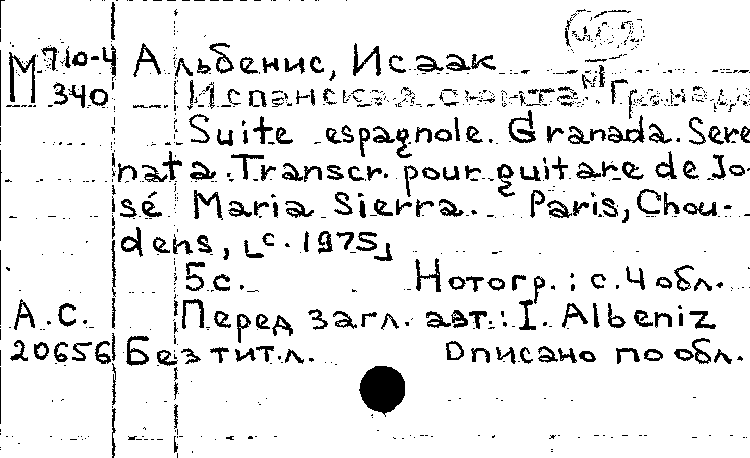 М 710-4
340
Альбенис, Исаак
Испанская сюита. Гранада
Suite espagnole. Granada. Sere
nata. Transcr. pour guitare de Jo-
sé Maria Sierra. Paris, Chou-
dens, [c. 1975]
5 с. Нотогр.: с. 4 обл.
А.С. Перед загл. авт.: I. Albeniz
20656 Без тит. л. Описано по обл.